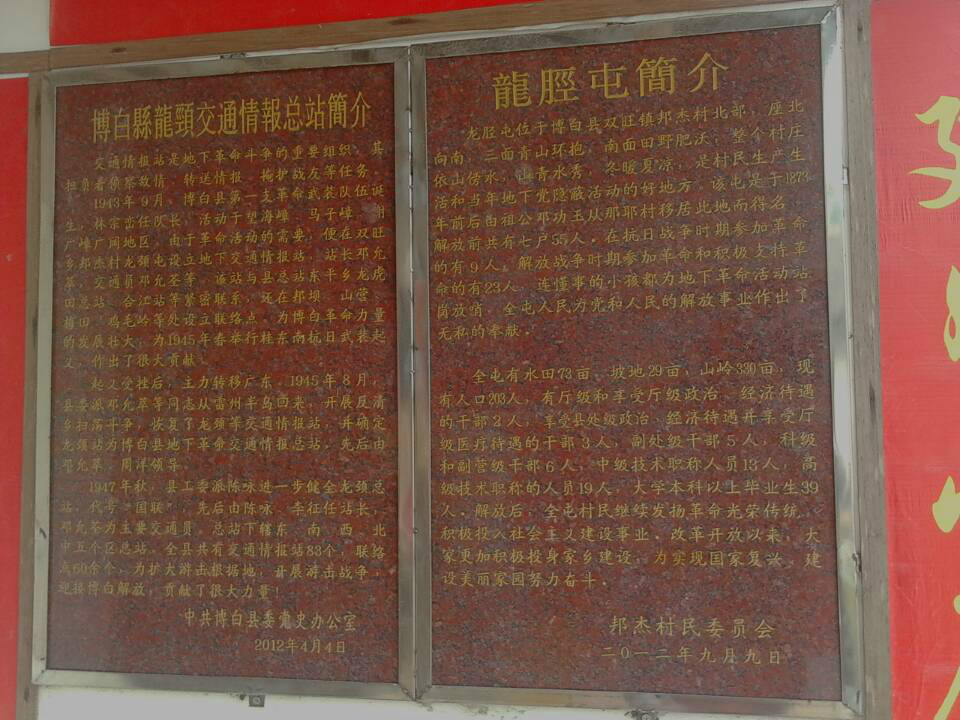 博白縣龍頸交通情報总站簡介
交通情报站是地下革命斗争的重要组织，其
担负着侦察敌情、转送情报、掩护战友等任务。
1943年9月，博白县第一支革命武装队伍诞
生，林宗峦任队长，活动于望海嶂、马子嶂、
广嶂广阔地区。由于革命活动的需要，便在双旺
乡邦杰村龙颈屯设立地下交通情报站，站长邓允
萃，交通员邓允荃等。该站与县总站东平乡龙虎
田总站、合江站等紧密联系，还在邦坝、山营、
、鸡毛岭等处设立联络点，为博白革命力量
的发展壮大，为1945年春举行桂东南抗日武装起
义，作出了很大贡献。
起义受挫后，主力转移广东。1945年8月，
县委派邓允萃等同志从雷州半岛回来，开展反清
乡扫荡斗争，恢复了龙颈等交通情报站，并确定
龙颈站为博白县地下革命交通情报总站。先后由
邓允萃、周洋领导。
1947年秋，县工委派陈咏进一步健全龙颈总
站，代号“国联”，先后由陈咏、李征任站长，
邓允荃为主要交通员。总站下辖东、南、西、北、
中五个区总站。全县共有交通情报站83个，联络
点60余个，为扩大游击根据地，开展游击战争，
迎接博白解放，贡献了很大力量！
中共博白县委党史办公室
2012年4月4日
龍脛屯簡介
龙胫屯位于博白县双旺镇邦杰村北部，座北
向南，三面青山环抱，南面田野肥沃，整个村庄
依山傍水，山青水秀，冬暖夏凉，是村民生产生
活和当年地下党隐蔽活动的好地方。该屯是于1873
年前后由祖公邓功王从那耶村移居此地而得名。
解放前共有七户55人。在抗日战争时期参加革命
的有9人，解放战争时期参加革命和积极支持革
命的有23人，连懂事的小孩都为地下革命活动站
岗放哨，全屯人民为党和人民的解放事业作出了
无私的奉献。
全屯有水田73亩，坡地29亩，山岭330亩，现
有人口203人，有厅级和享受厅级政治、经济待遇
的干部2人，享受县处级政治、经济待遇并享受厅
级医疗待遇的干部3人，副处级干部5人，科级
和副营级干部6人，中级技术职称人员13人，高
级技术职称的人员19人，大学本科以上毕业生39
人。解放后，全屯村民继续发扬革命光荣传统，
积极投入社会主义建设事业。改革开放以来，大
家更加积极投身家乡建设，为实现国家复兴，建
设美丽家园努力奋斗。
邦杰村民委员会
二〇一二年九月九日